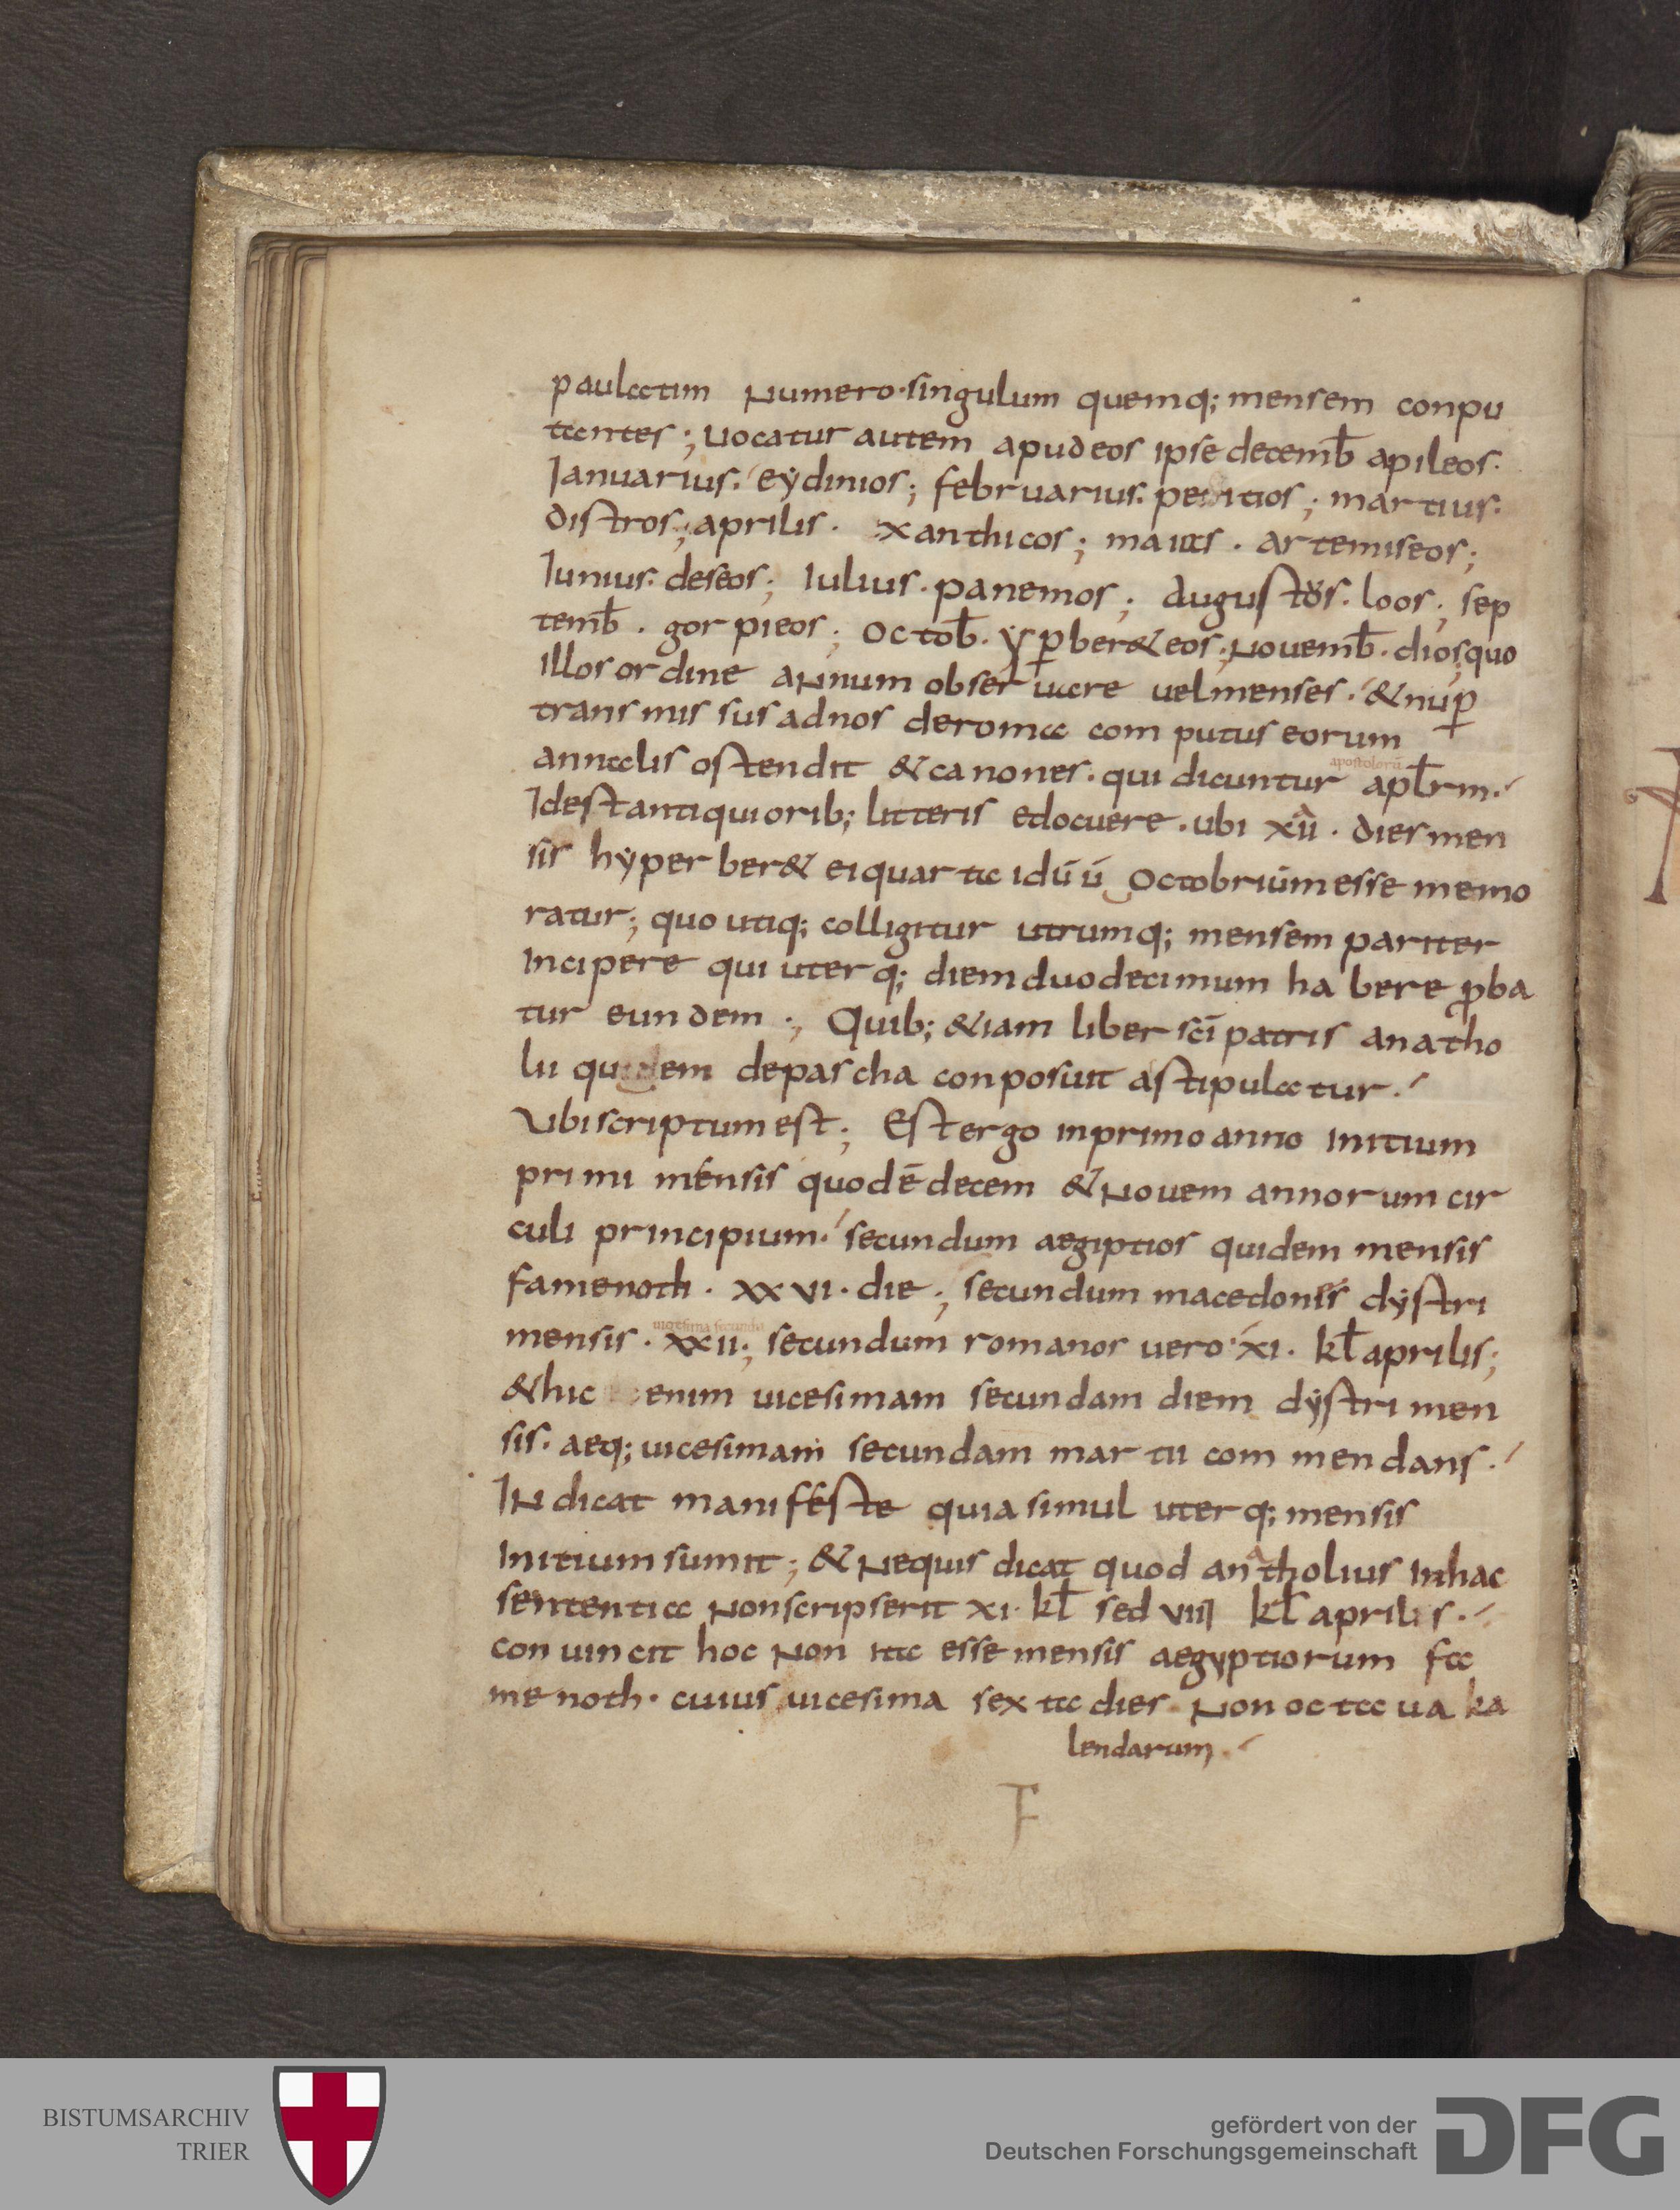 paulatim numero· singulum quemq; mensem conpu
tantes; uocatur autem apud eos ipse decemb̄ apileos·
Ianuarius· eẏdinios; februarius· peritios; martius·
distros; aprilis· xanthicos; maius· artemiseos;
Iunius· deseos; Iulius· panemos; augustos· loos; sep
temb̄· gorpieos; octob̄· ẏꝑber&eos; nouemb̄· dios; quo
illos ordine annum obseruare uel menses· & nuꝑ
transmissus ad nos de roma computus eorum
apostolorū
annalis ostendit & canones· qui dicuntur apl̄rm·
Id est antiquiorib; litteris edocuere· ubi xii· dies men
sis hẏperber& ei quarta idūū octobrium esse memo
ratur; quo utiq; colligitur utrumq; mensem pariter
incipere qui uterq; diem duodecimum habere ꝓba
tur eundem·, Quib; &iam liber sc̄i patris anatho
lii quidem de pascha conposuit astipulatur·
Ubi scriptum est; Est ergo in primo anno initium
primi mensis quod ē decem & nouem annorum cir
culi principium· secundum aegiptios quidem mensis
famenoth· xxvi· die; secundum macedonis dẏstri
uigesima secunda
mensis· xxii·; secundum romanos uero· xi· kł aprilis;
& hic enim uicesimam secundam diem dẏstri men
sis· aeq; uicesimam secundam martii commendans·
Indicat manifeste quia simul uterq; mensis
initium sumit; & nequis dicat quod anatholius in hac
sententia non scripserit xi· kł sed viii kł aprilis·
conuincit hoc non ita esse mensis aegyptiorum fa
menoth· cuius uicesima sexta dies· non octaua ka
lendarum·
F
BISTUMSARCHIV
TRIER
gefördert von der
Deutschen Forschungsgemeinschaft
DFG